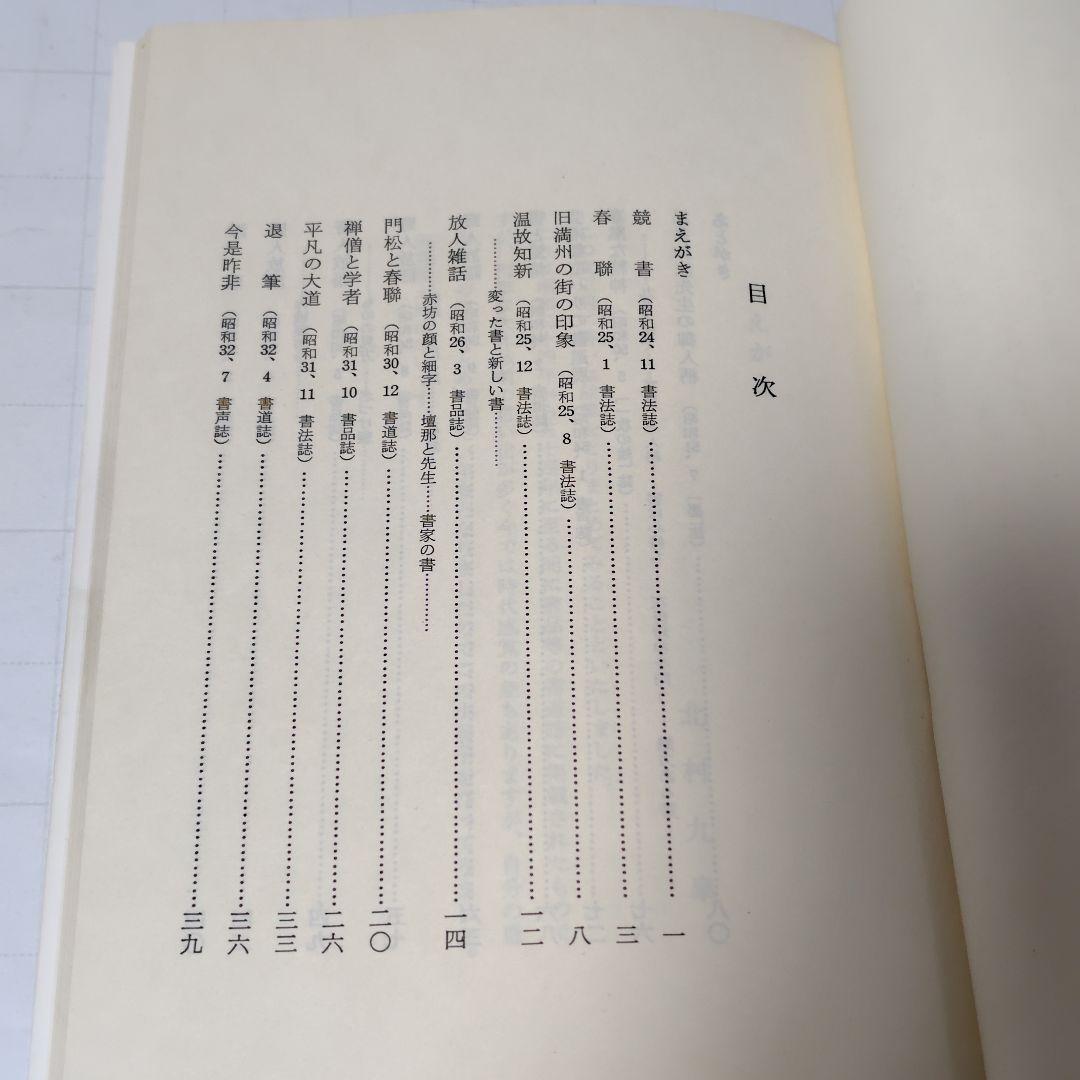 目次
まえがき
競書（昭和24、11 書法誌）…………一
春聯（昭和25、1 書法誌）…………三
旧満州の街の印象（昭和25、8 書法誌）…………八
温故知新（昭和25、12 書法誌）…………一二
…………変った書と新しい書…………
放人雑話（昭和26、3 書品誌）…………一四
…………赤坊の顔と細字……壇那と先生……書家の書…………
門松と春聯（昭和30、12 書道誌）…………二〇
禅僧と学者（昭和31、10 書品誌）…………二六
平凡の大道（昭和31、11 書法誌）…………三三
退筆（昭和32、4 書道誌）…………三六
今是昨非（昭和32、7 書声誌）…………三九